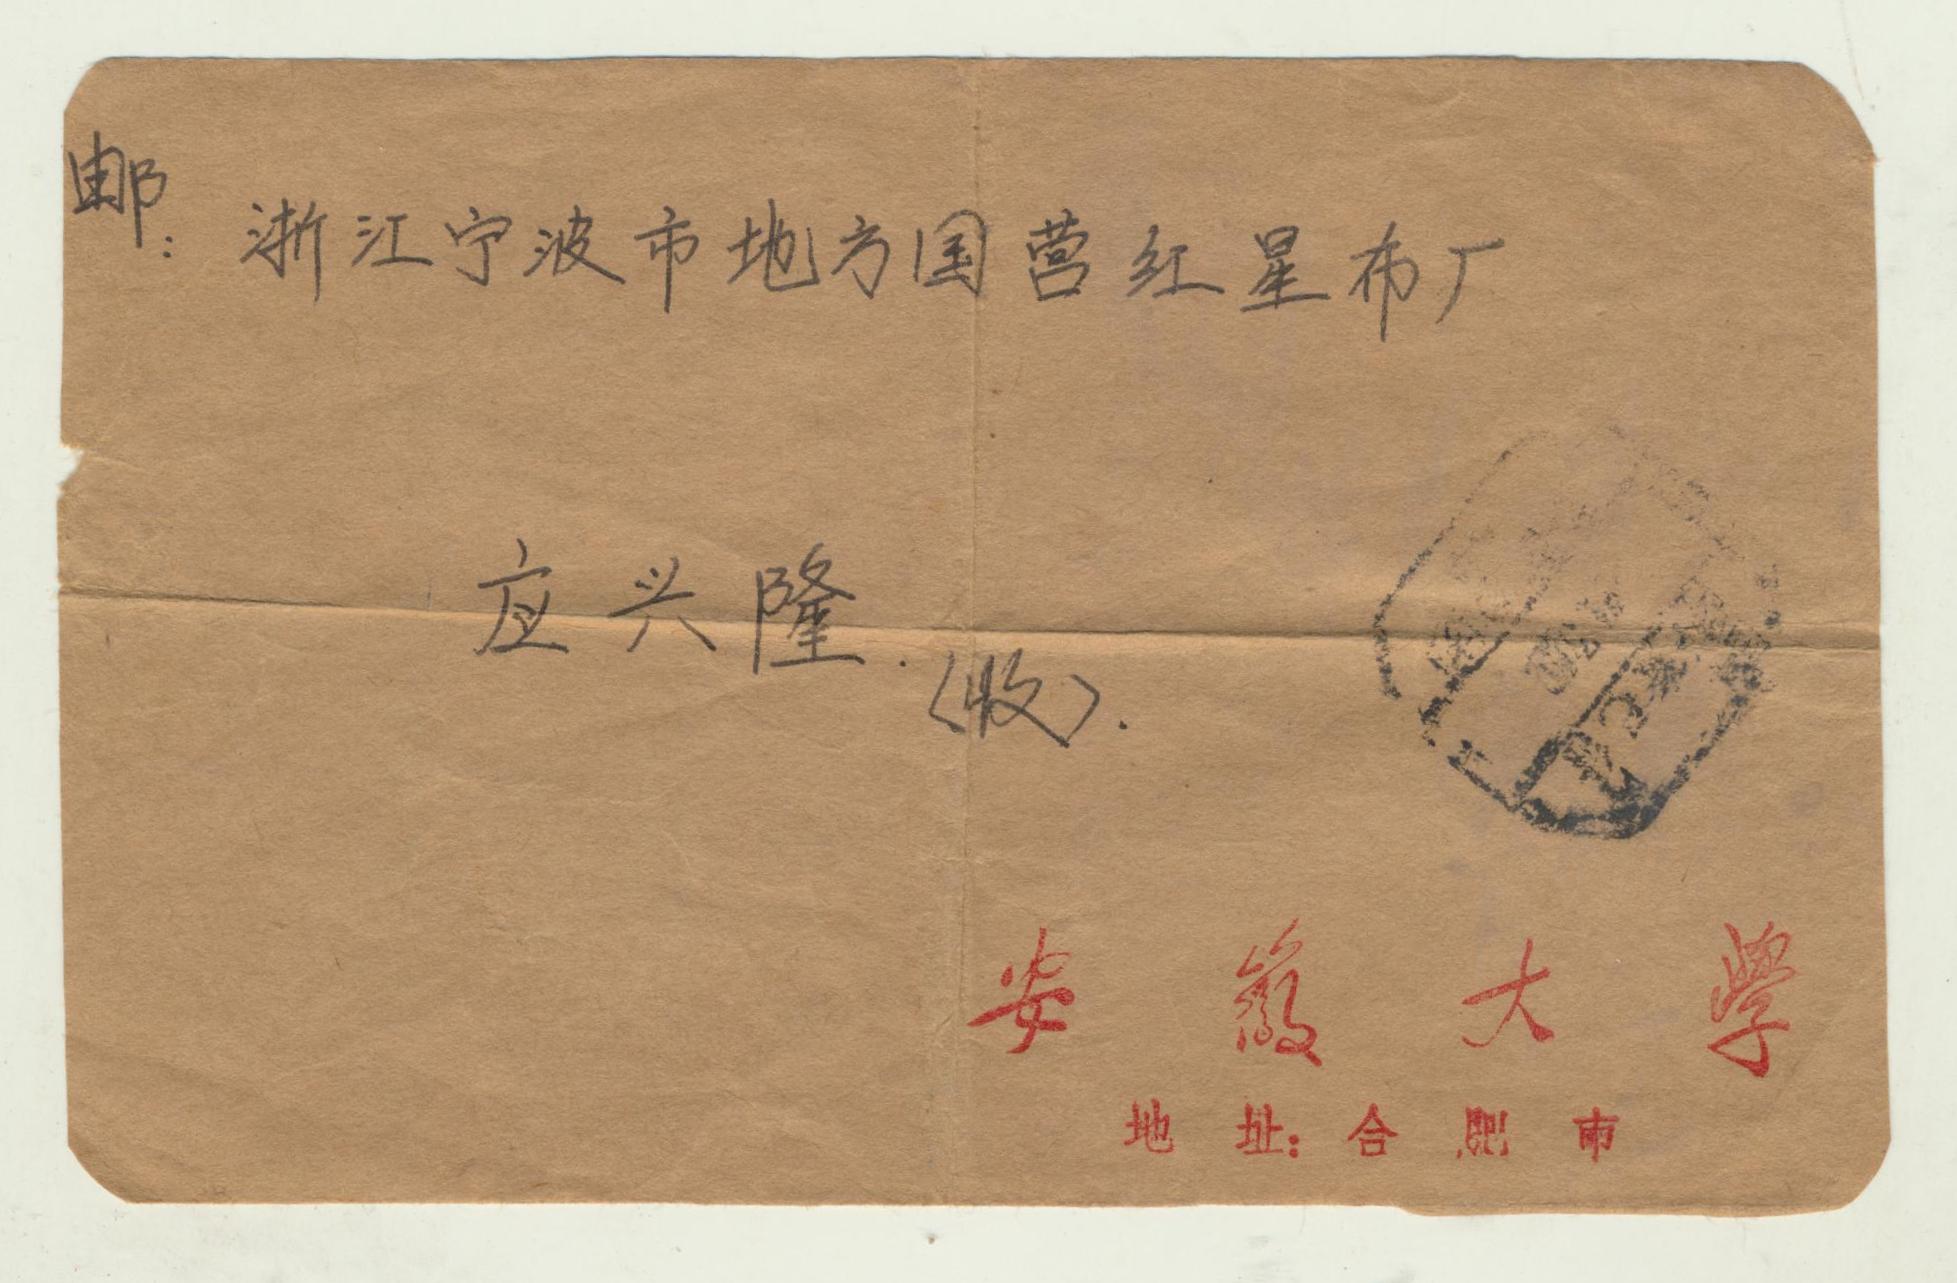 邮:
浙江宁波市地方国营红星布厂
应兴隆.
(收).
安徽大學
地址:合肥市